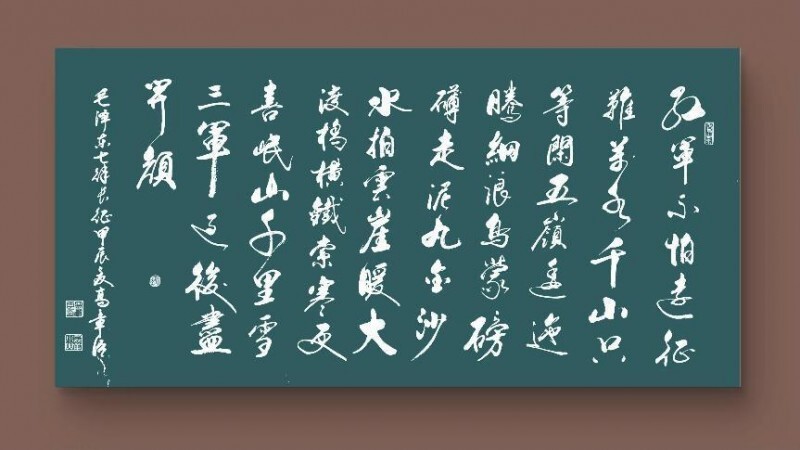 紅軍不怕遠征
難萬水千山只
等閑五嶺逶迤
騰細浪烏蒙磅
礴走泥丸金沙
水拍雲崖暖大
渡橋橫鐵索寒更
喜岷山千里雪
三軍過後盡
開顏
毛澤東七律長征甲辰夏高章